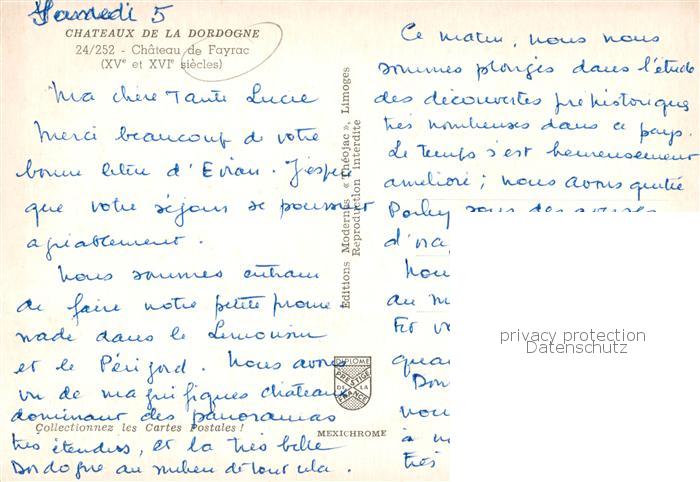 Samedi 5
CHATEAUX DE LA DORDOGNE
24/252 - Château de Fayrac
(XVe et XVIe siècles)
Ma chère Tante Lucie
Merci beaucoup de votre
bonne lettre d'Evian. J'espère
que votre séjour se poursuit
agréablement.
Nous sommes entrain
de faire notre petite prome
nade dans le Limousin
et le Périgord. Nous avons
vu de magnifiques châteaux
dominant des panoramas
très étendus, et la très belle
Dordogne au milieu de tout cela.
Collectionnez les Cartes Postales !
Editions Modernes « Théojac », Limoges
Reproduction Interdite
DIPLOME
PRESTIGE
DE LA
FRANCE
MEXICHROME
Ce matin, nous nous
sommes plongés dans l'étude
des découvertes préhistoriques
très nombreuses dans ce pays.
Le temps s'est heureusement
amélioré ; nous avons quitté
sous des averses
d'
Nous
au
Et
quar
Don
vous
à
très
privacy protection
Datenschutz